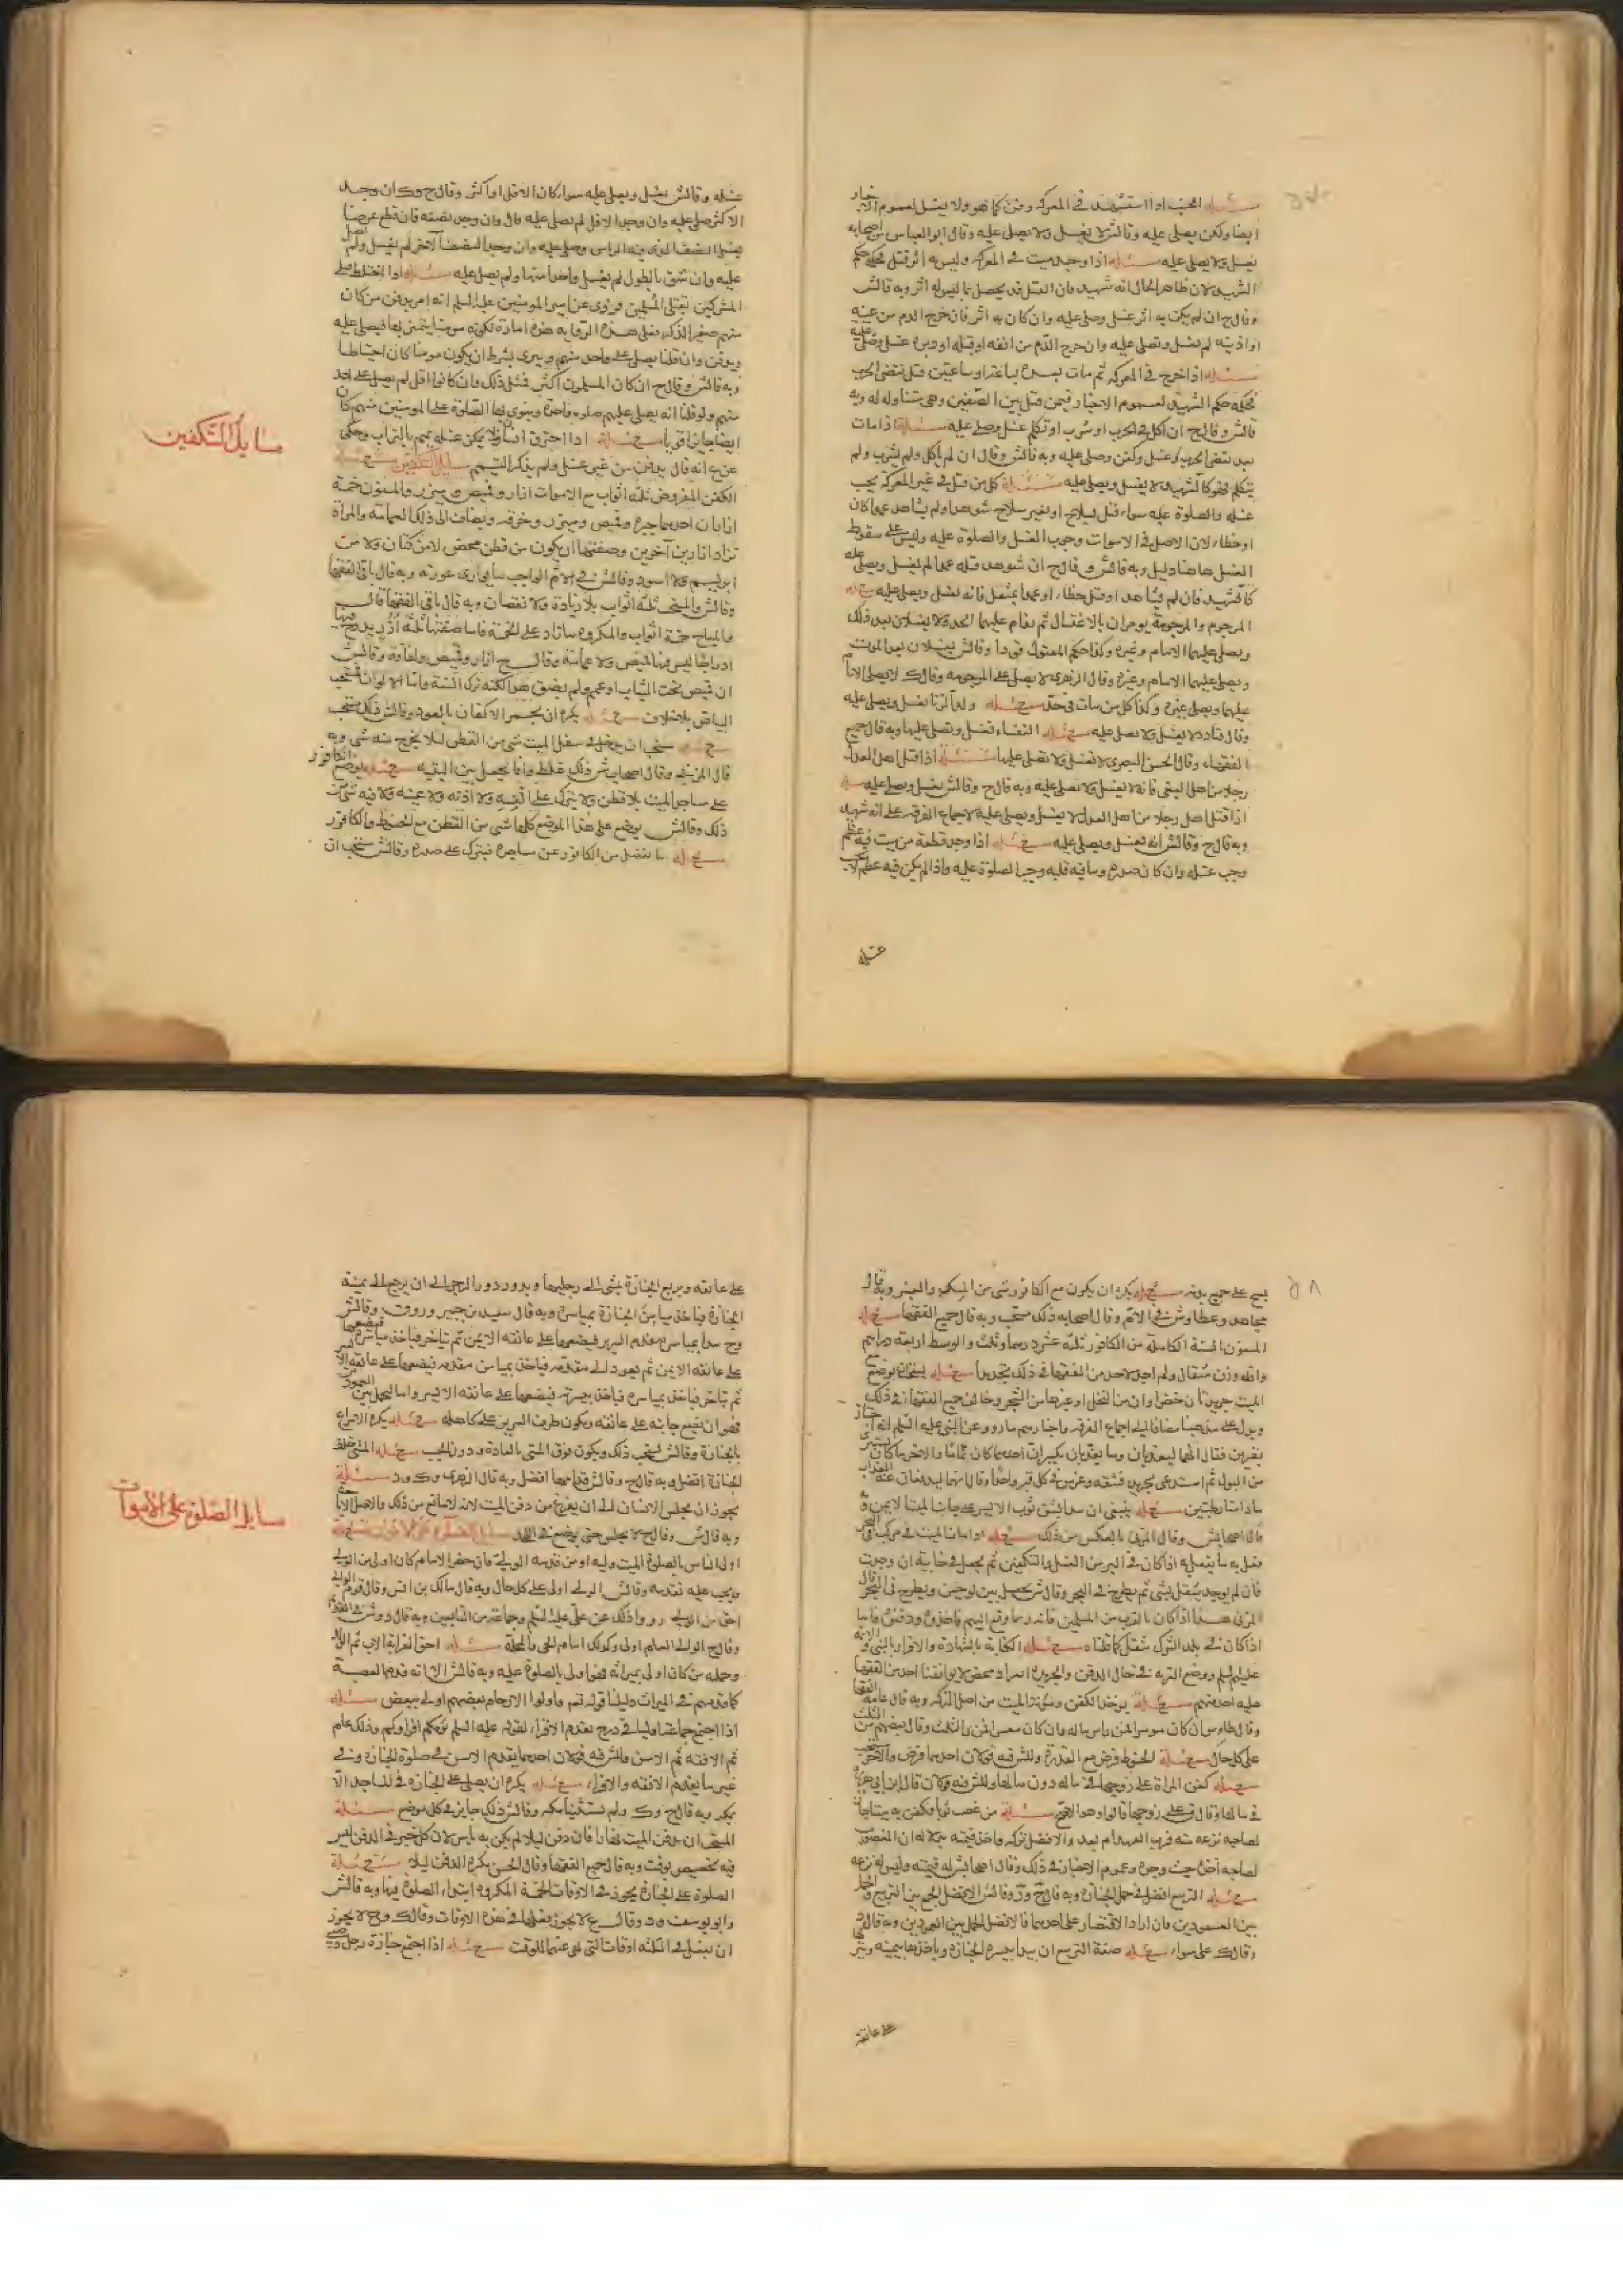 مسئلة الجنب اذا استشهد في المعركة دفن كما هو ولا يغسل لعموم الاخبار
ايضا ولكن يصلى عليه وقال ش لا يغسل ولا يصلى عليه وقال ابو العباس من اصحابه
يغسل ولا يصلى عليه مسئلة اذا وجد ميت في المعركة وليس به اثر قتل فحكمه حكم
الشهيد لان ظاهر الحال انه شهيد فان القتل قد يحصل بما ليس له اثر وبه قال ش
وقال ح ان لم يكن به اثر غسل وصلى عليه وان كان به اثر فان خرج الدم من عينه
او اذنه لم يغسل ويصلى عليه وان خرج الدم من انفه او قبله او دبره غسل وصلى عليه
مسئلة اذا خرج في المعركة ثم مات بعده بساعة او ساعتين قبل تقضى الحرب
فحكمه حكم الشهيد لعموم الاخبار فيمن قتل بين الصفين وهي متناوله له وبه
قال ش وقال ح ان اكل في الحرب او شرب او تكلم غسل وصلى عليه مسئلة اذا مات
بعد تقضى الحرب غسل وكفن وصلى عليه وبه قال ش وقال ان لم ياكل ولم يشرب ولم
يتكلم فهو كالشهيد ولا يغسل ويصلى عليه مسئلة كل من قتل في غير المعركة يجب
غسله والصلوة عليه سواء قتل بسلاح او بغير سلاح شوهد او لم يشاهد عمدا كان
او خطاء لان الاصل في الاموات وجوب الغسل والصلوة عليه وليس على سقوط
الغسل هاهنا دليل وبه قال ش وقال ح ان شوهد قتله عمدا لم يغسل ويصلى عليه
كالشهيد فان لم يشاهد او قتل خطاء او عمدا بمثقل فانه يغسل ويصلى عليه مسئلة
المرجوم والمرجومة يومران بالاغتسال ثم يقام عليهما الحد ولا يغسلان بعد ذلك
ويصلى عليهما الامام وغيره وكذا حكم المقتول قودا وقال ش يغسلان بعد الموت
ويصلى عليهما الامام وغيره وقال الزهري لا يصلى على المرجومة وقال ك لا يصلى الامام
عليهما ويصلى غيره وكذا كل من مات في حد مسئلة ولد الزنا يغسل ويصلى عليه
وقال قتادة لا يغسل ولا يصلى عليه مسئلة النفساء تغسل ويصلى عليها وبه قال جميع
الفقهاء وقال الحسن البصري لا تغسل ولا يصلى عليها مسئلة اذا قتل اهل العدل
رجلا من اهل البغي فانه لا يغسل ولا يصلى عليه وبه قال ح وقال ش يغسل ويصلى عليه مسئلة
اذا قتل اهل رجلا من اهل العدل لا يغسل ويصلى عليه لاجماع الفرقة على انه شهيد
وبه قال ح وقال ش انه يغسل ويصلى عليه مسئلة اذا وجد قطعة من ميت فيه عظم
وجب غسله وان كان صدره وما فيه قلبه وجب الصلوة عليه واذا لم يكن فيه عظم لا يجب
غسله
غسله وقال ش يغسل ويصلى عليه سواء كان الاقل او اكثر وقال ح وك ان وجد
الاكثر صلى عليه وان وجد الاقل لم يصلى عليه قال وان وجد نصفه فان قطع عرضا
يغسل النصف الذي فيه الراس وصلى عليه وان وجد النصف الآخر لم يغسل ولم يصل
عليه وان شق بالطول لم يغسل واحدا منها ولم يصل عليه مسئلة اذا اختلط قتلى
المشركين بقتلى المسلمين فروى عن امير المومنين عليه السلم انه امر بدفن من كان
منهم صغير الذكر فعلى هذه الرواية هذه امارة لكونه مومنا يتميز بها فيصلى عليه
ويدفن وان قلنا يصلى على واحد منهم وينوى بشرط ان يكون مومنا كان احتياطا
وبه قال ش وقال ح ان كان المسلمون اكثر فمثل ذلك وان كانوا اقل لم يصل على احد
منهم ولو قلنا انه يصلى عليهم صلوه واحدة وينوى بها الصلوة على المومنين منهم كان
ايضا جايزا قويا مسئلة اذا احترق انسان ولا يمكن غسله يمم بالتراب وحكى
عن ع انه قال يدفن من غير غسل ولم يذكر التيمم مسايل التكفين مسئلة
الكفن المفروض ثلثة اثواب مع الامكان ازار وقميص وميزر والمسنون خمسة
ازاران احدهما حبرة وقميص وميزر وخرقة ويضاف الى ذلك العمامة والمراة
تزاد ازارين آخرين وصفتها ان يكون من قطن محض لا من كتان ولا من
ابريسم ولا اسود وقال ش في الام الواجب ما يوارى عورته وبه قال باقى الفقهاء
وقال ش والمستحب ثلثة اثواب بلا زيادة ولا نقصان وبه قال باقى الفقهاء قال
والمباح خمسة اثواب والمكروه ما زاد على الخمسة فاما صفتها ثلثة ازر يدرج فيها
ادراجا ليس فيها قميص ولا عمامة وقال ح ازار وقميص ولفافة وقال ش
ان قميص تحت الثياب او عمم ولم يضق هو الكنه ترك السنة واما الالوان فالمستحب
البياض بلا خلاف مسئلة يكره ان يجمر الاكفان بالعود وقال ش ذلك مستحب
مسئلة يستحب ان يدخل في سفل الميت شي من القطن ليلا يخرج منه شي وبه
قال المزني وقال اصحاب ش ذلك غلط وانما يجعل بين اليتيه مسئلة يوضع الكافور
على مساجد الميت بلا قطن ولا يترك على انفه ولا اذنه ولا عينه ولا فيه شي من
ذلك وقال ش يوضع على هذا الموضع كلها شي من القطن مع الحنوط والكافور
مسئلة ما يفضل من الكافور عن مساجده فيترك على صدره وقال ش يستحب ان
مسايل التكفين
٥٨
يمسح على جميع بدنه مسئلة يكره ان يكون مع الكافور شي من المسك والعنبر وبه قال
مجاهد وعطا وش في الام وقال اصحابه ذلك مستحب وبه قال جميع الفقهاء مسئلة
المسنون السنة الكاملة من الكافور ثلثة عشر درهما وثلث والوسط اربعة دراهم
واقله وزن مثقال ولم اجد لاحد من الفقهاء في ذلك تحديدا مسئلة يستحب ان يوضع مع
الميت جريدتان خضراوان من النخل او غيرها من الشجر وخالف جميع الفقهاء في ذلك
ويدل على مذهبنا مضافا الى اجماع الفرقة واخبارهم ما روو عن النبي عليه السلم انه اجتاز
بقبرين فقال انهما ليعذبان وما يعذبان بكبير ان احدهما كان نماما والاخر ما كان يستبرئ
من البول ثم استدعى بجريدة فشقه وغرس في كل قبر واحدا وقال انهما ليدفعان عنهما العذاب
ما دامتا رطبتين مسئلة ينبغي ان يبدا بشق ثوب الايسر على جانب الميت الايمن وبه
قال اصحاب ش وقال المزني بالعكس من ذلك مسئلة اذا مات الميت في مركب في البحر
يفعل به ما يفعل به اذا كان في البر من الغسل والتكفين ثم يجعل في خابية ان وجدت
فان لم يوجد يثقل بشي ثم يطرح في البحر وقال ش يجعل بين لوحين ويطرح في البحر قال
المزني هذا اذا كان بالقرب من المسلمين فانه ربما وقع اليهم فاخذوه ودفنوه فاما
اذا كان في بلد الشرك يثقل كما قلناه مسئلة الكتابة بالشهادة والاقرار بالنبي والائمة
عليهم السلم ووضع التربة في حال الدفن والجريدة انفراد محض لا يوافقنا احد من الفقهاء
عليه احد منهم مسئلة يوخذ الكفن ومؤنة الميت من اصل التركة وبه قال عامة الفقهاء
وقال طاوس ان كان موسرا فمن راس ماله وان كان معسرا فمن الثلث وقال بعضهم من الثلث
على كل حال مسئلة الحنوط فرض مع القدرة وللشرفيه قولان احدهما فرض والآخر مستحب
مسئلة كفن المراة على زوجها في ماله دون مالها وللشرفيه قولان قال ابن ابي هريرة
في مالها وقال ق على زوجها قالوا وهو الاصح مسئلة من غصب ثوبا وكفن به ميتا جاز
لصاحبه نزعه منه قرب العهد ام بعد والافضل تركه واخذ قيمته
لصاحبه اخذه حيث وجده وعموم الاخبار في ذلك وقال اصحاب ش له قيمته وليس له نزعه
مسئلة التربيع افضل في حمل الجنازة وبه قال ح وش وقال ش الافضل الجمع بين التربيع والحمل
بين العمودين فان اراد الاقتصار على احدهما فالافضل الحمل بين العمودين وبه قال
وقال ك على سواء مسئلة صفة التربيع ان يبدا بيسرة الجنازة وياخذها بيمينه
على عاتقه
على عاتقه ويربع الجنازة يمشى الى رجليها ويدور دور الرحى الى ان يرجع الى يمنة
الجنازة فياخذ ميامن الجنازة بمياسره وبه قال سعيد بن جبير وقال ش
وح يبدا بمياسر مقدم السرير فيضعها على عاتقه الايمن ثم يتاخر فياخذ مياسره فيضعها
على عاتقه الايمن ثم يعود الى مقدمه فياخذ بميامن مقدمه فيضعها على عاتقه الايسر
ثم يتاخر فياخذ بمياسره فيضعها على عاتقه الايسر واما الحمل بين العمودين
فهو ان يضع جانبه على عاتقه ويكون طرف السرير على كاهله مسئلة يكره الاسراع
بالجنازة وقال ش يستحب ذلك ويكون فوق المشي بالعادة ودون الخبب مسئلة المشي خلف
الجنازة افضل وبه قال ح وقال ش قدامها افضل وبه قال الزهري وك ود مسئلة
يجوز ان يجلس الانسان الى ان يفرغ من دفن الميت لانه لا مانع من ذلك والاصل الاباحة
وبه قال ش وقال ح لا يجلس حتى يوضع في اللحد مسايل الصلوة على الاموات مسئلة
اولى الناس بالصلوة الميت وليه او من قدمه الولي فان حضر الامام كان اولى من الولي
ويجب عليه تقديمه وقال ش الولي اولى على كل حال وبه قال مالك بن انس وقال قوم الوالي
احق من الولي رووا ذلك عن على عليه السلم وجماعة من التابعين وبه قال د وش في القديم
وقال ح الوالي العام اولى وكذلك امام الحي والمحلة مسئلة احق القرابة الاب ثم الولد
وجمله من كان اولى بميراثه فهو اولى بالصلوة عليه وبه قال ش الا انه قدم العصبة
كما قدمهم في الميراث دليلنا قوله تعم واولوا الارحام بعضهم اولى ببعض مسئلة
اذا اجتمع جماعة اولياء في درج يقدم الاقراء لقوله عليه السلم يؤمكم اقراوكم وذلك عام
ثم الافقه ثم الاسن وللشرفيه قولان احدهما يقدم الاسن في صلوة الجنازة وفي
غير ما يقدم الافقه والاقراء مسئلة يكره ان يصلى على الجنازة في المساجد الا
بمكة وبه قال ح وك ولم يستثنيا مكة وقال ش ذلك جايز في كل موضع مسئلة
المستحب ان يدفن الميت نهارا فان دفن ليلا لم يكن به باس لان كل خبر في الدفن ليس
فيه تخصيص بوقت وبه قال جميع الفقهاء وقال الحسن يكره الدفن ليلا مسئلة
الصلوة على الجنازة يجوز في الاوقات الخمسة المكروه ابتداء الصلوة فيها وبه قال ش
وابو يوسف ود وقال ع لا يجوز فعلها في هذه الاوقات وقال ك وح لا يجوز
ان يفعل في الثلثة اوقات التي نهى عنها للوقت مسئلة اذا اجتمع جنازة رجل وصبي
مسايل الصلوة على الاموات